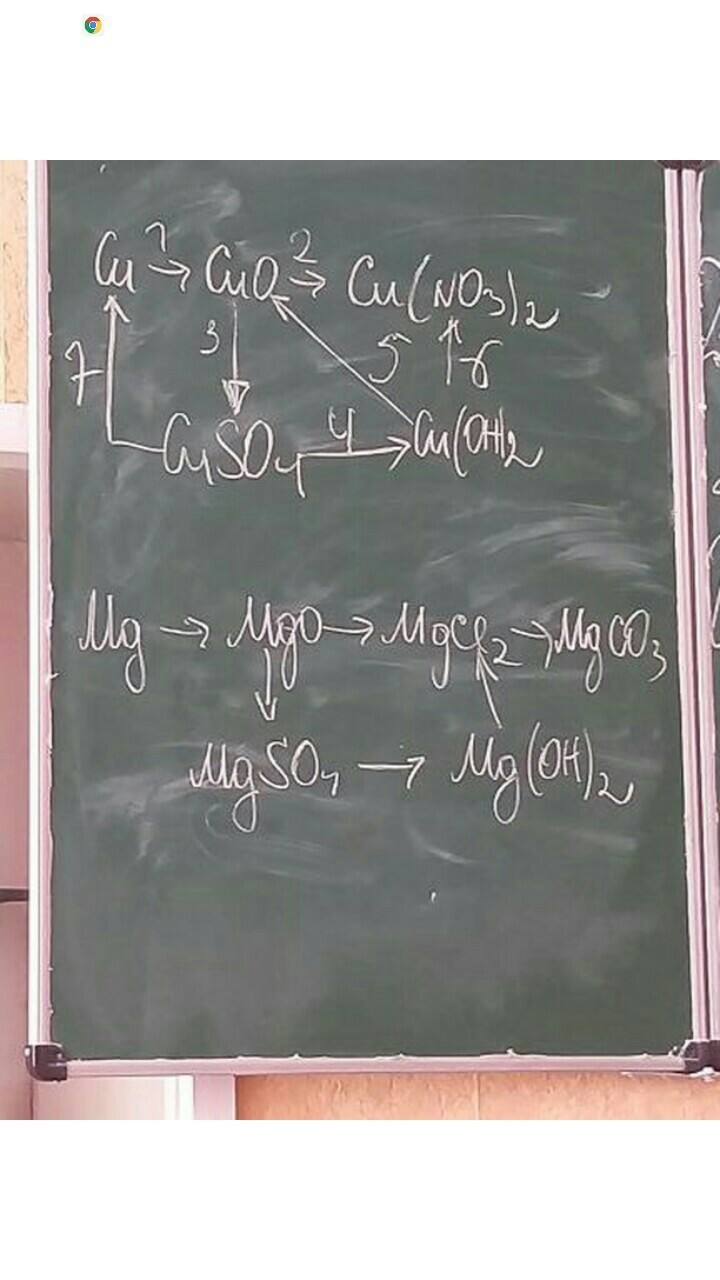 Cu 1→ CuO 2→ Cu(NO3)2
7 ↑ 3 ↓ 5 ↖ ↑ 6
CuSO4 4→ Cu(OH)2
Mg → MgO → MgCl2 → MgCO3
↓ ↑
MgSO4 → Mg(OH)2